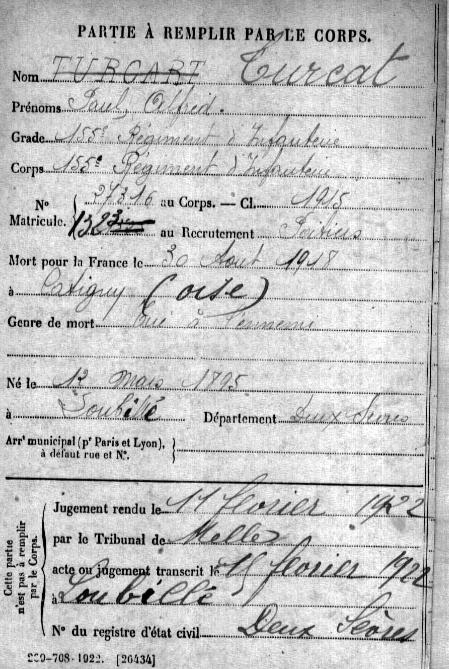 PARTIE À REMPLIR PAR LE CORPS.
Nom TURCART Turcat
Prénoms Paul, Alfred.
Grade 155e Régiment d'Infanterie
Corps 155e Régiment d'Infanterie
N° 27316 au Corps. — Cl. 1915
Matricule. 132 au Recrutement Poitiers
Mort pour la France le 30 Août 1918
à Catigny (oise)
Genre de mort Tué à l'ennemi
Né le 12 Mars 1895
à Loubillé Département Deux Sèvres
Arrt municipal (pr Paris et Lyon),
à défaut rue et N°.
Cette partie
n'est pas à remplir
par le Corps.
Jugement rendu le 11 février 1922
par le Tribunal de Melle
acte ou jugement transcrit le février 1922
à Loubillé
Deux Sèvres
N° du registre d'état civil
[26434]